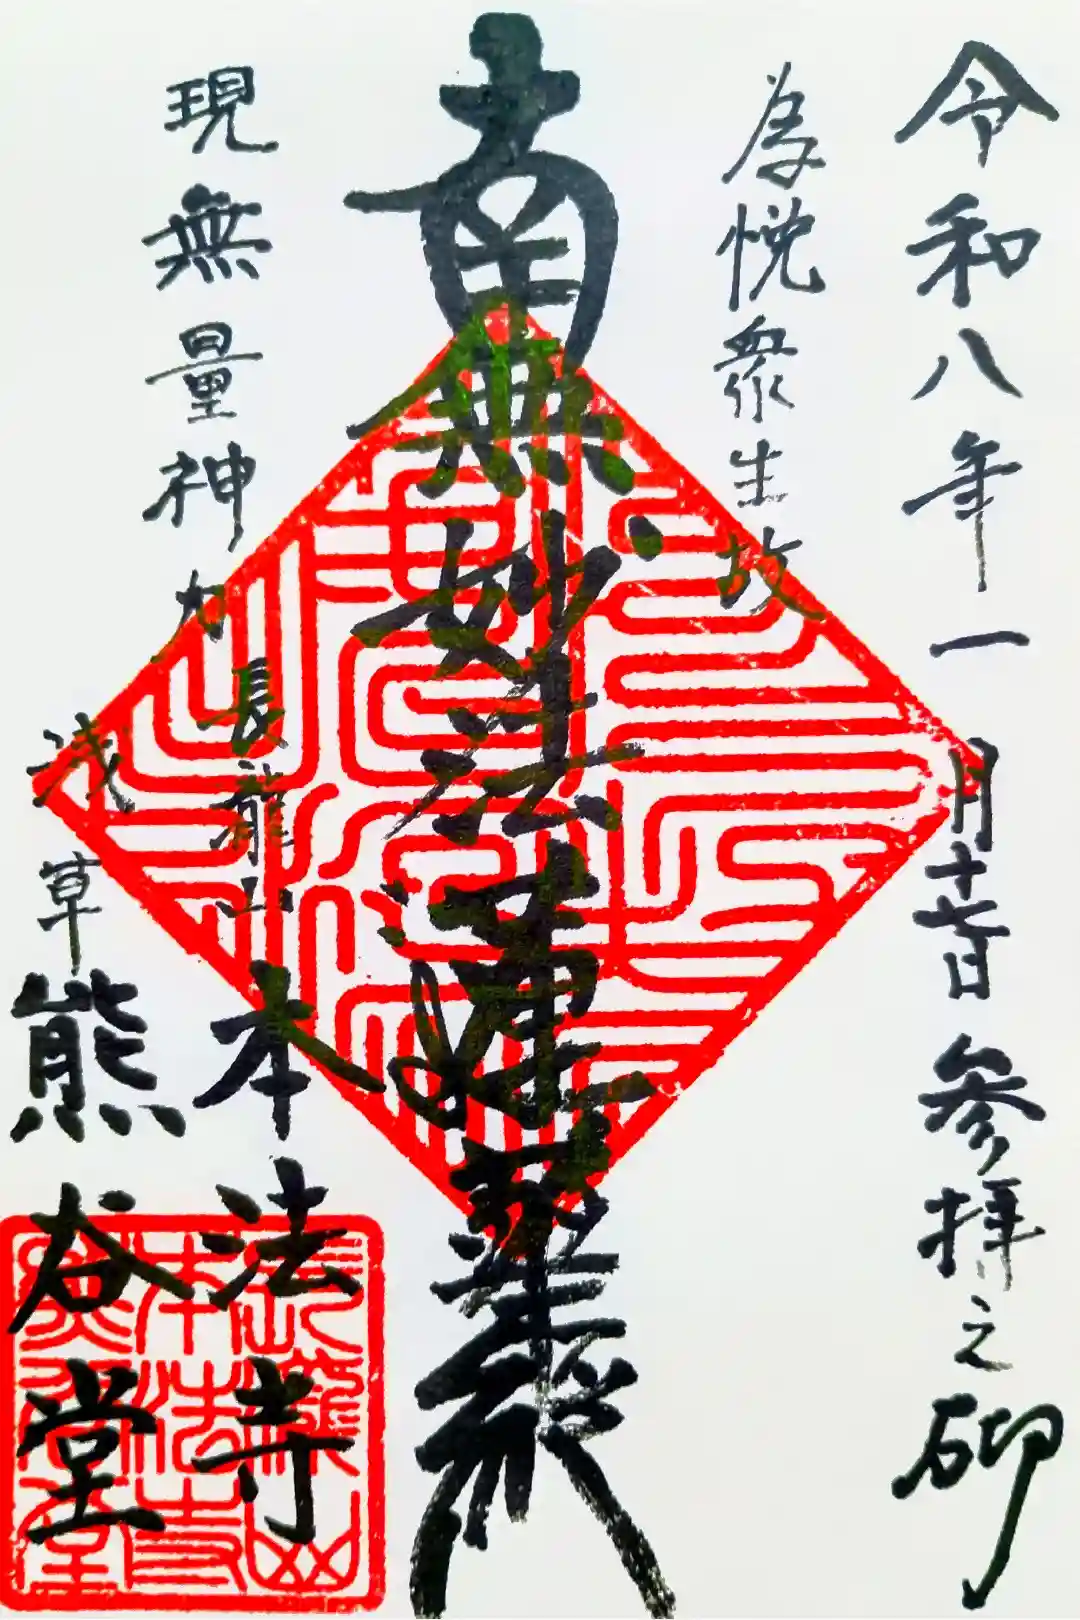 令和八年一月十七日参拝之砌
為悦衆生故
南無妙法蓮華経
現無量神力
長瀧山本法寺
浅草熊谷堂
長瀧山
本法寺
熊谷堂